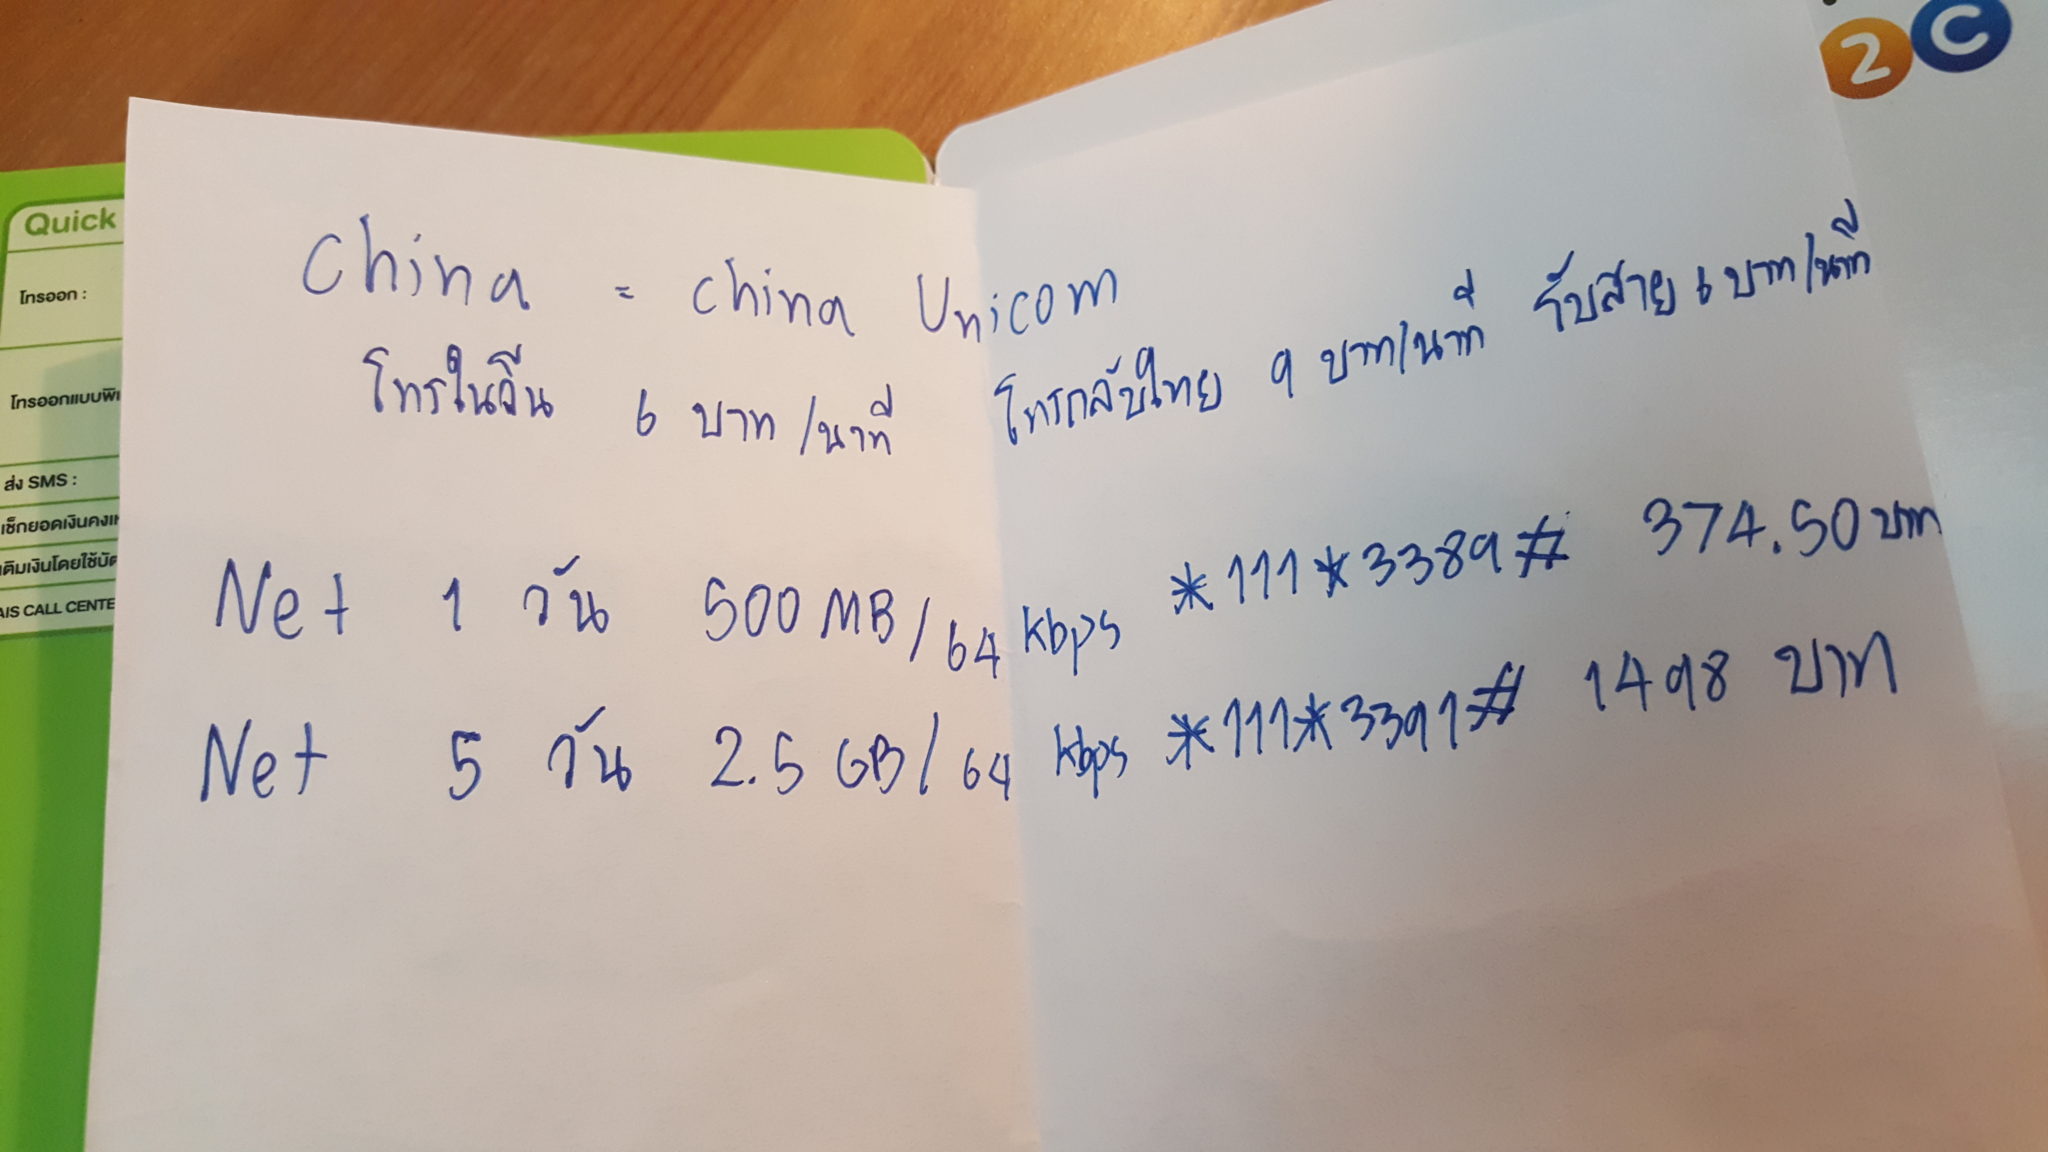 2C
Quick
โทรออก :
โทรออกแบบพิเ
ส่ง SMS :
เช็กยอดเงินคงเห
เติมเงินโดยใช้บัต
AIS CALL CENTE
China = China Unicom
โทรในจีน 6 บาท/นาที โทรกลับไทย 9 บาท/นาที รับสาย 6 บาท/นาที
Net 1 วัน 500 MB/64 kbps *111*3389# 374.50 บาท
Net 5 วัน 2.5 GB/64 kbps *111*3391# 1498 บาท